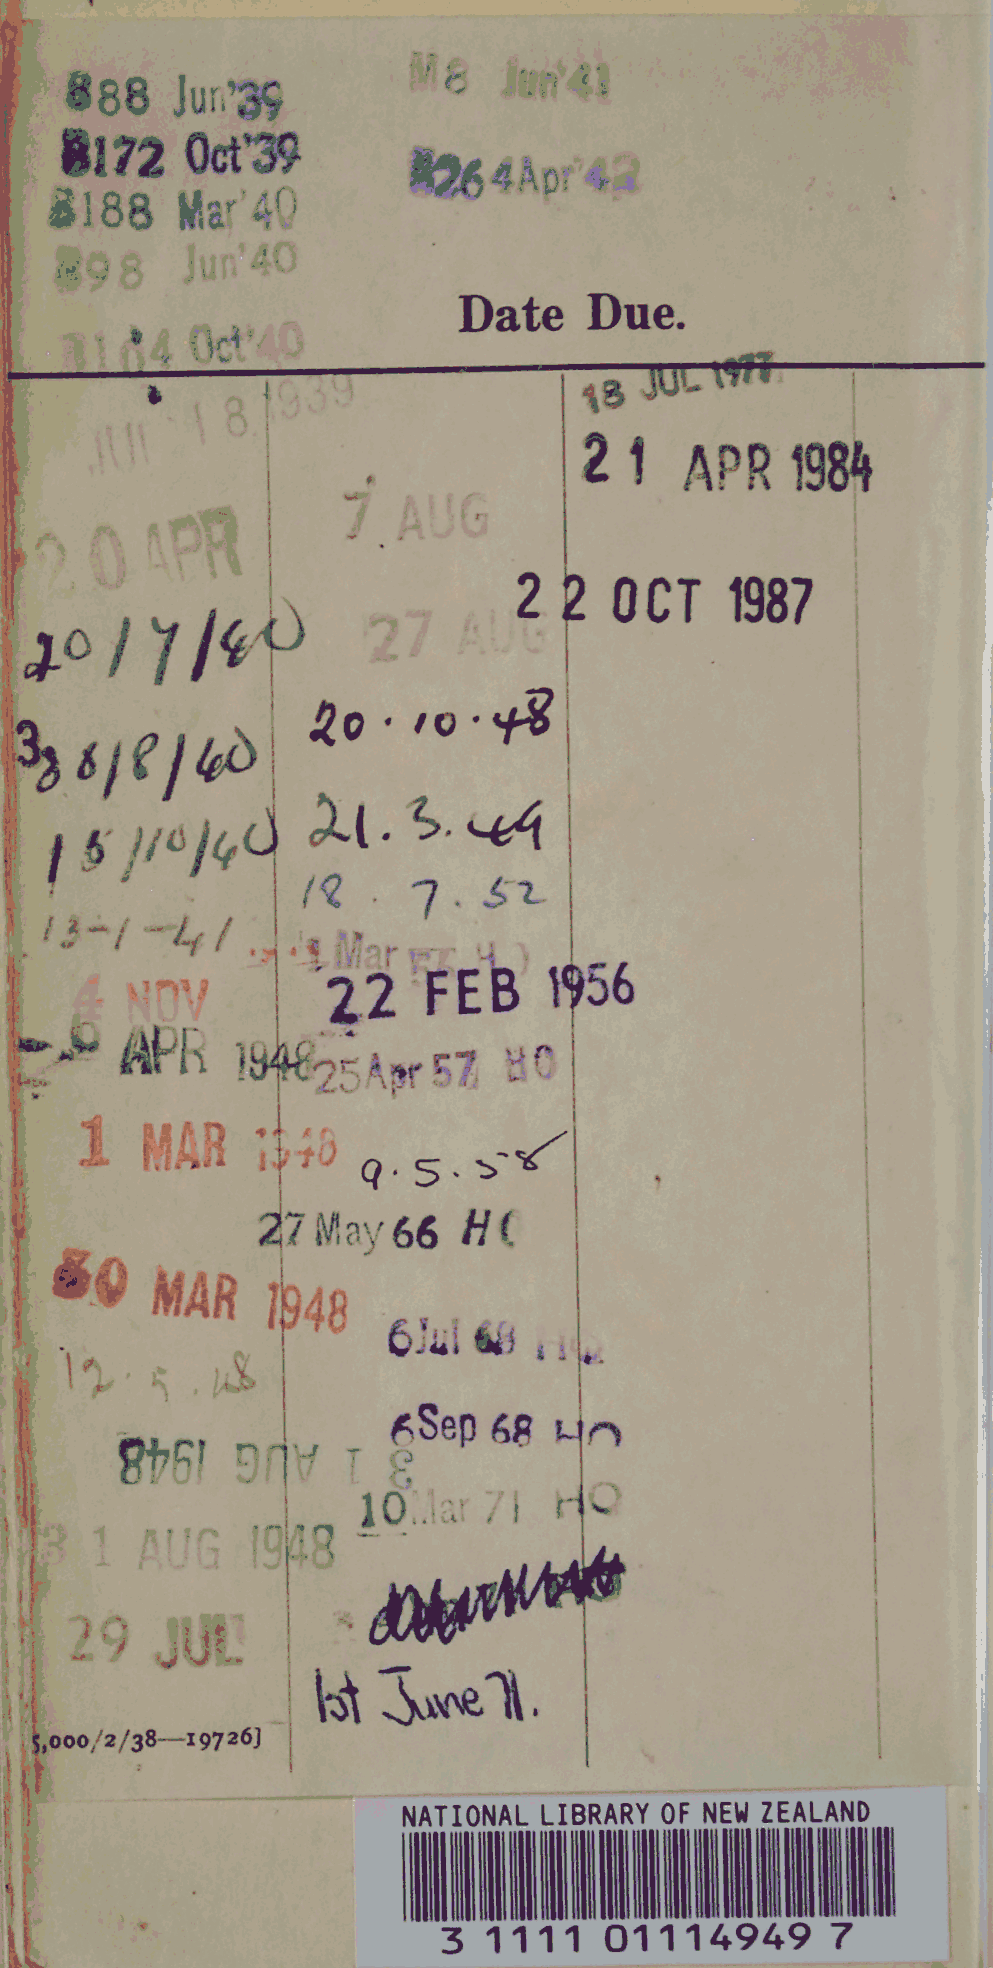 B88 Jun'39
B172 Oct'39
B188 Mar'40
B98 Jun'40
B104 Oct'40
M8 Jun'41
B264 Apr'42
Date Due.
JUL 18 1939
20 APR
20/7/40
30/8/40
15/10/40
13-1-41
4 NOV
APR 1948
1 MAR 1948
30 MAR 1948
12.5.48
31 AUG 1948
31 AUG 1948
29 JUL
7 AUG
27 AUG
20.10.48
21.3.49
18.7.52
Mar
22 FEB 1956
25 Apr 57 HO
9.5.58
27 May 66 HO
6 Jul 68 HQ
6 Sep 68 HQ
10 Mar 71 HQ
1st June 71.
18 JUL 1977
21 APR 1984
22 OCT 1987
5,000/2/38—19726]
NATIONAL LIBRARY OF NEW ZEALAND
3 1111 01114949 7